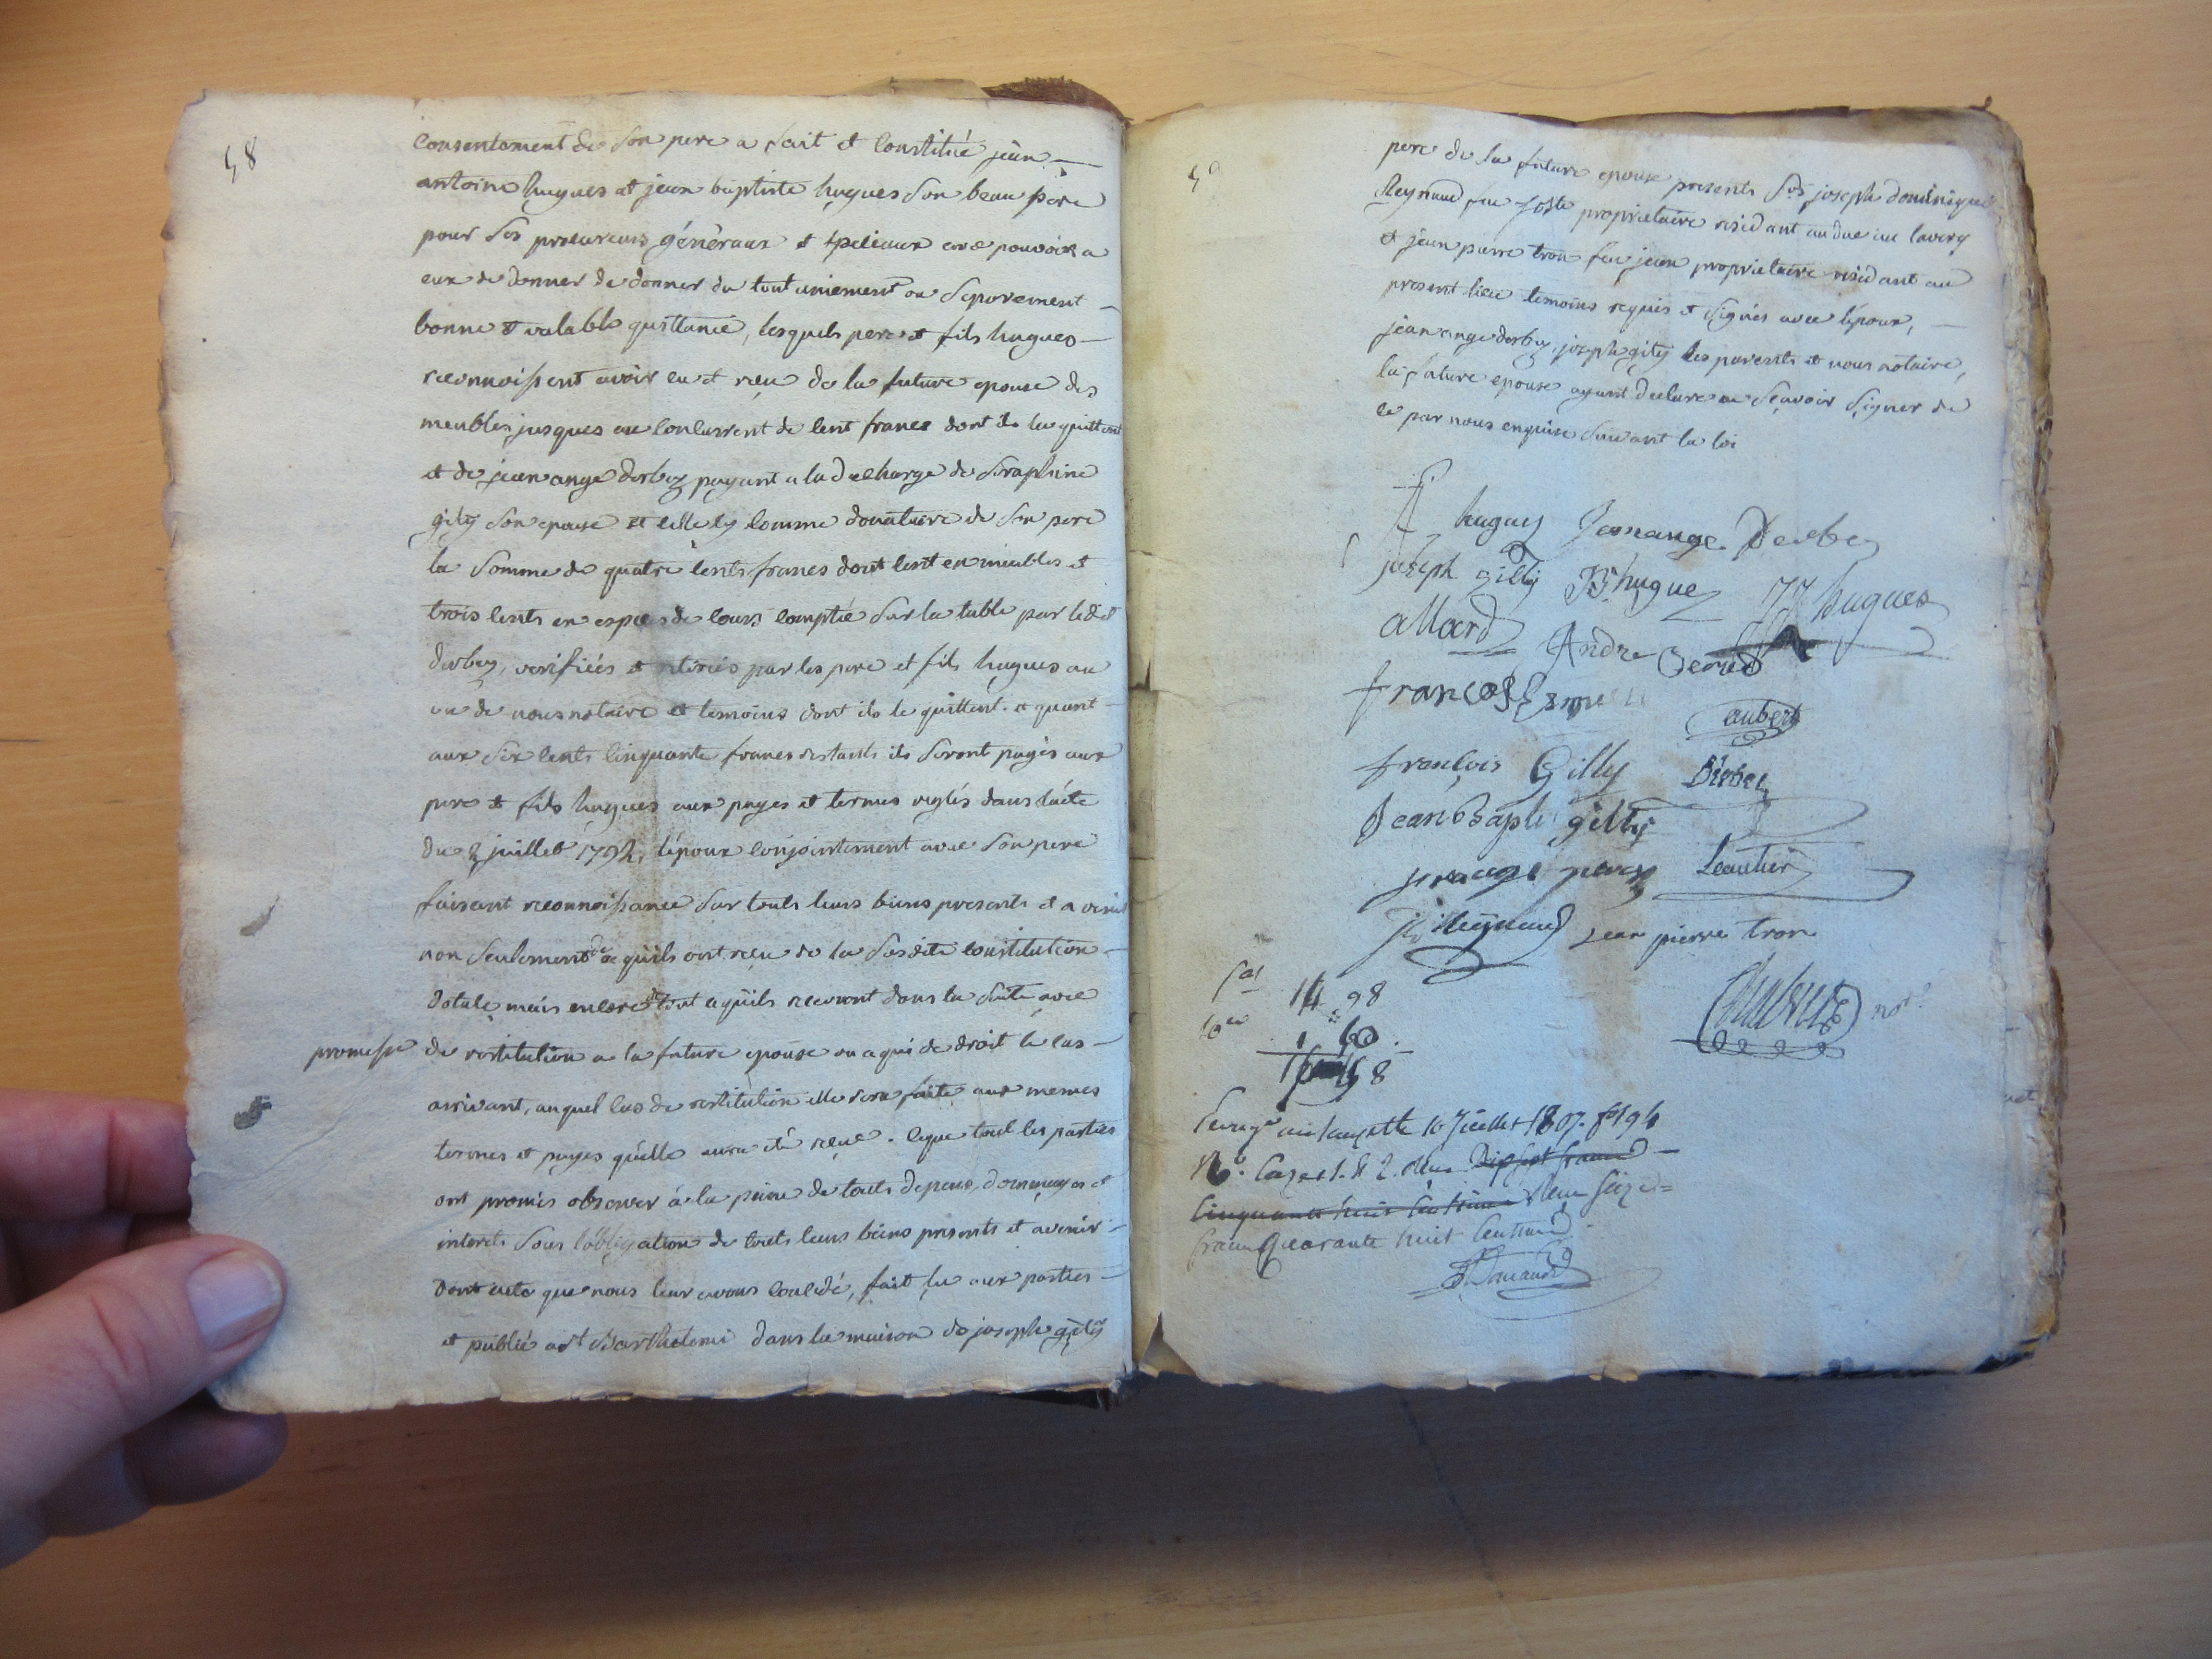 58
consentement de son pere a fait et constitué jean
antoine hugues et jean baptiste hugues son beau pere
pour ses procureurs généraux et speciaux avec pouvoir a
eux de donner de donner du tout uniement ou separement
bonne et valable quittance, lesquels pere et fils hugues
reconnoissent avoir eu et reçu de la future epouse des
meubles jusques au concurrent de cent francs dont ils la quittent
et de jean ange derbez payant a la decharge de seraphine
gilly son epouse et celle cy comme donataire de son pere
la somme de quatre cents francs dont cent en meubles et
trois cents en especes de cours comptée sur la table par ledit
derbez, verifiées et retirées par les pere et fils hugues au
vu de nous notaire et temoins dont ils le quittent. et quant
aux six cents cinquante francs restants ils seront payés aux
pere et fils hugues aux payes et termes reglés dans l'acte
du 2 juillet 1792, l'epoux conjointement avec son pere
faisant reconnoissance sur touts leurs biens presents et a venir
non seulement de ce qu'ils ont reçu de la susdite constitution
dotale mais encore de tout ce qu'ils recevront dans la suite avec
promesse de restitution a la future epouse ou a qui de droit le cas
arrivant, auquel cas de restitution elle sera faite aux memes
termes et payes qu'elle aura été reçue. ce que tout les parties
ont promis observer à la peine de touts depens, dommages et
interets sous l'obligation de touts leurs biens presents et avenir
dont acte que nous leur avons concédé, fait lu aux parties
et publié a st Barthelemi dans la maison de joseph gilly
59
pere de la future epouse presents srs joseph dominique
Reynaud feu joste proprietaire residant audue au lavercq
et jean pierre tron feu jean proprietaire residant au
present lieu temoins requis et signés avec l'epoux,
jean ange derbez, joseph gilly les parents et nous notaire,
la future epouse ayant declaré ne sçavoir signer de
ce par nous enquise suivant la loi
hugues Jeanange Derbez
joseph gilly B hugues JJ hugues
allard André
francois
aubert
françois Gilly Derbez
Jean Bapte gilly
Leautier
Reynaud jean pierre tron
not.
14 98
10e 1 50
16 48
Enregé a la uzette 10 Juillet 1807. fo 194
Vo. Cases 1. et 2. Reçu Dix sept francs
Cinquante huit Centimes Reçu Seize
francs Quarante huit Centimes